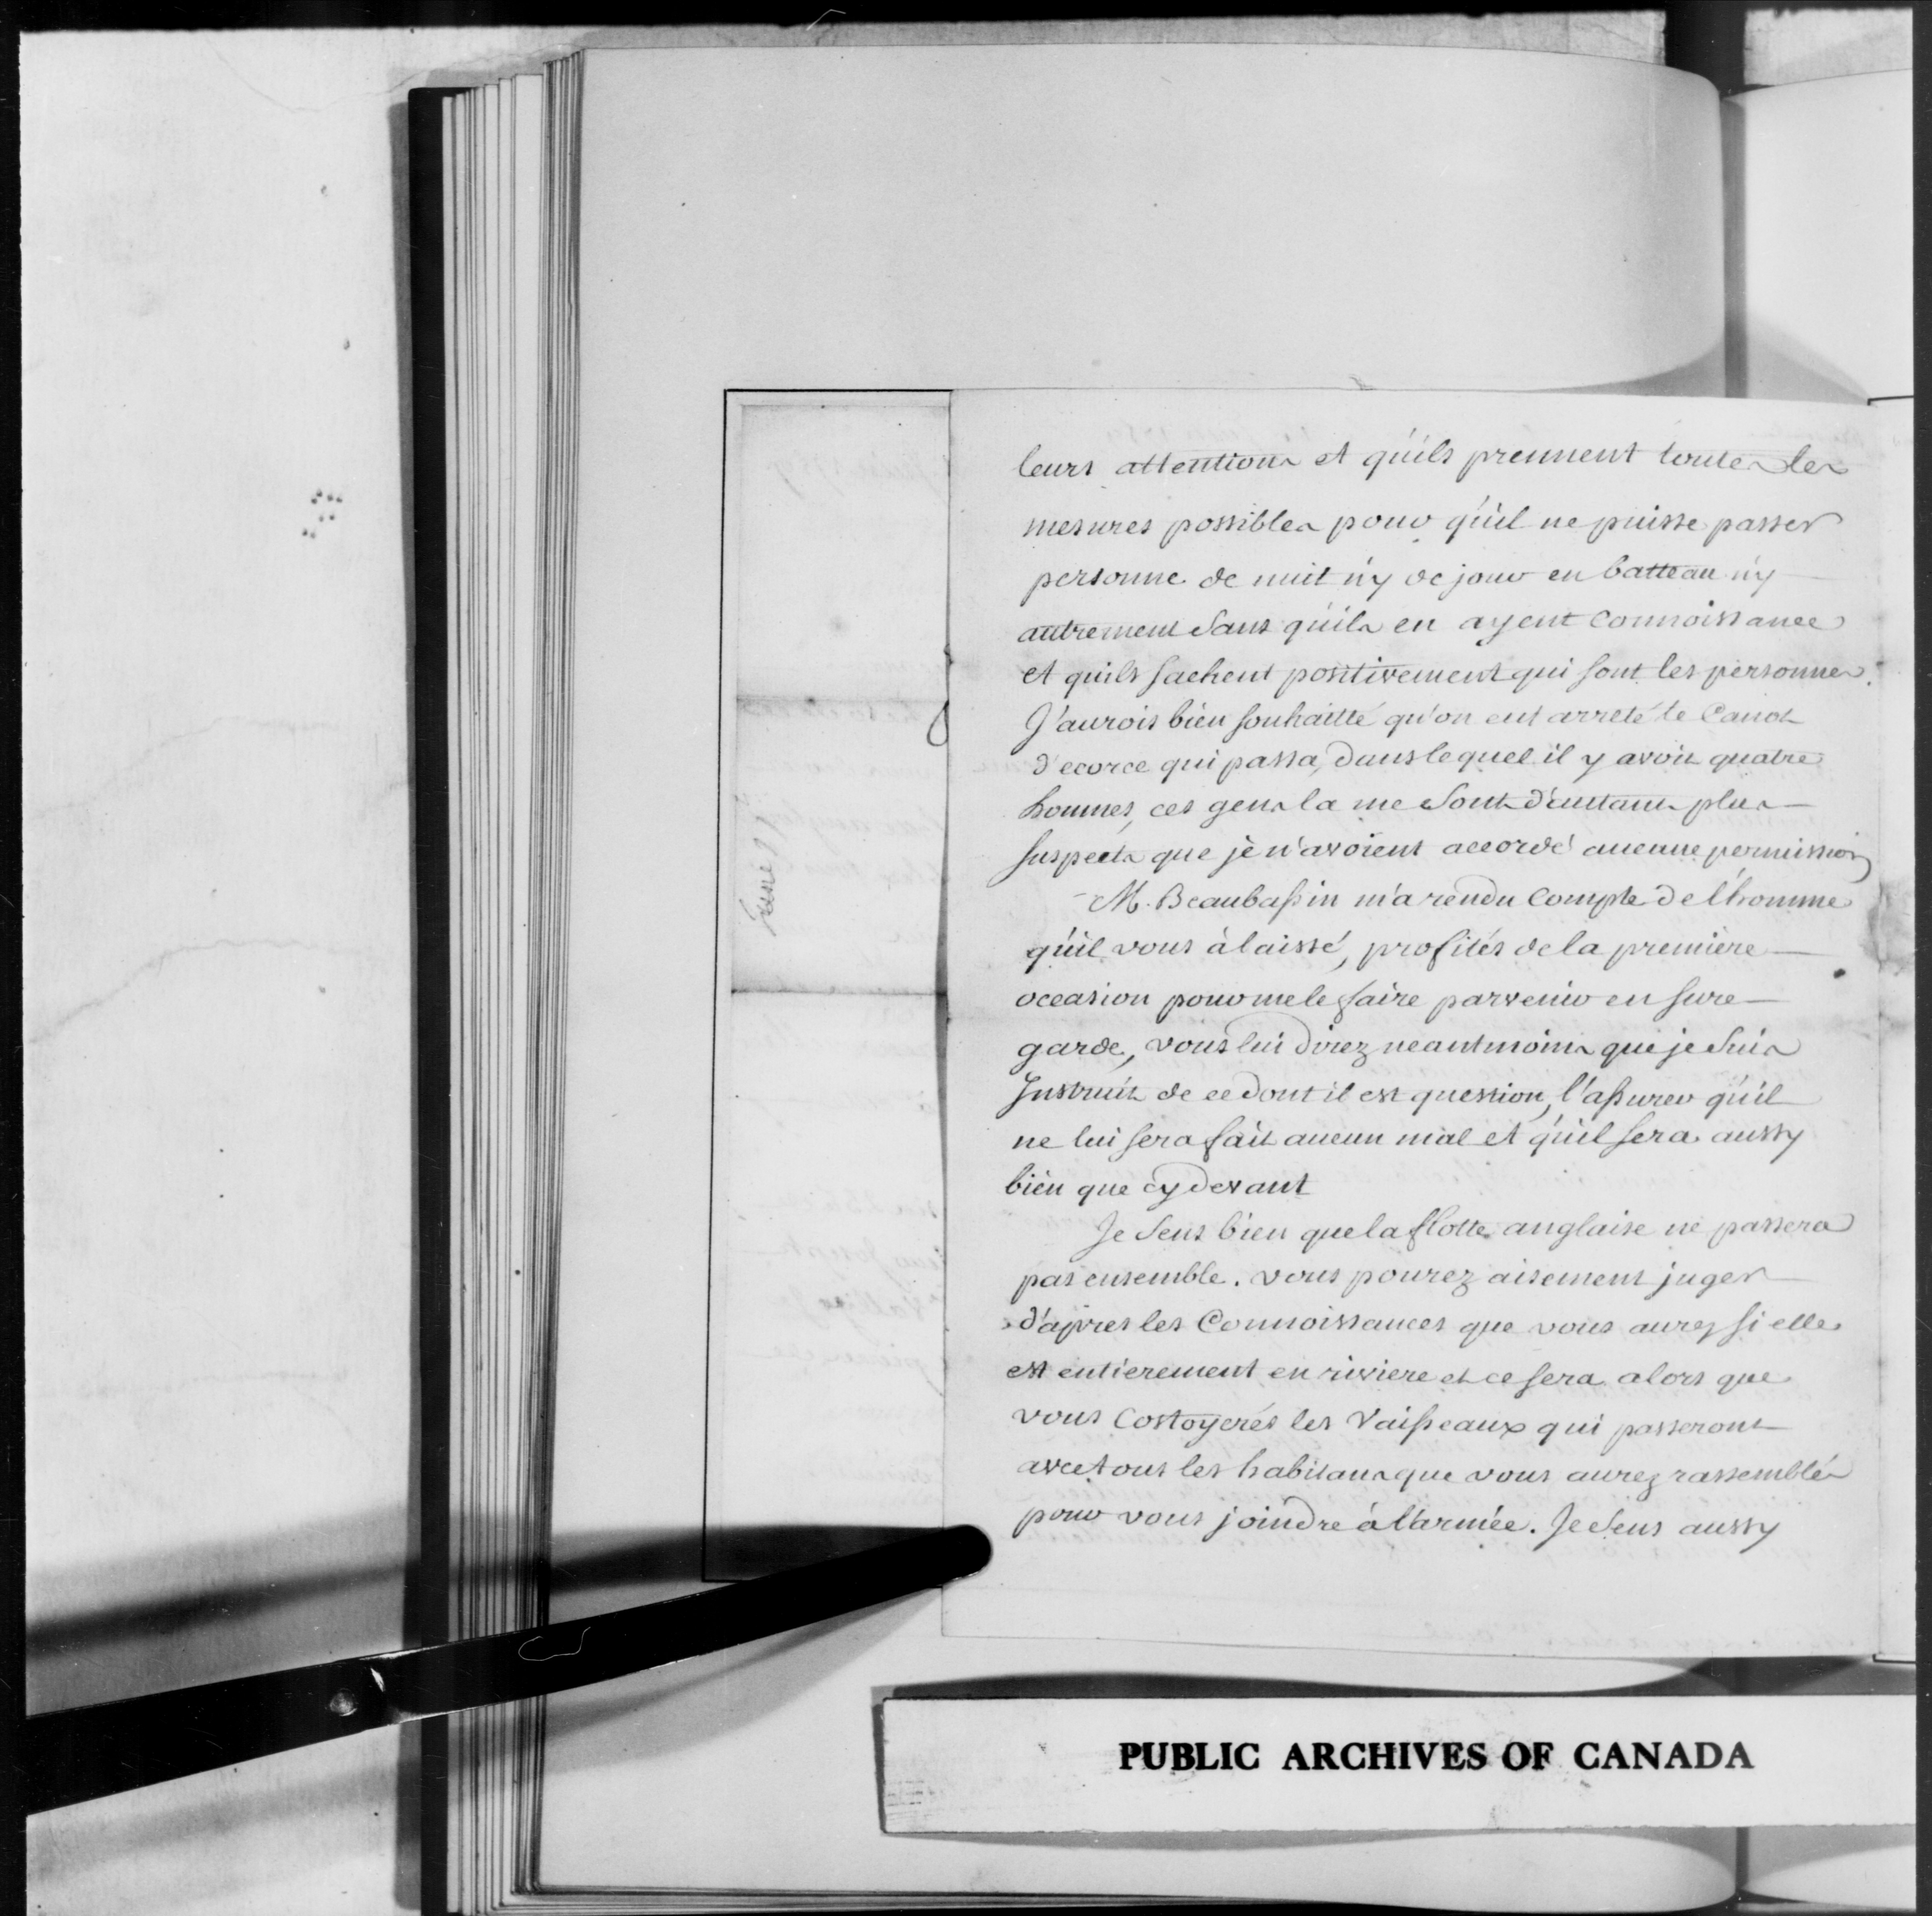 leurs attentions et qu'ils prennent toutes les
mesures possibles pour qu'il ne puisse passer
personne de nuit n'y de jour en batteau n'y
autrement sans qu'ils en ayent connoissance
et quils sachent positivement qui sont les personnes.
J'aurois bien souhaitté qu'on eut arreté le Canot
d'ecorce qui passa, dans le quel il y avoit quatre
hommes, ces gens la me sont d'autant plus
suspects que je n'avoient accordé aucune permission
M. Beaubassin m'a rendu compte de l'homme
qu'il vous à laissé, profités de la première
occasion pour me le faire parvenir en sure
garde, vous lui direz neantmoins que je suis
Instruit de ce dont il est question, l'assurer qu'il
ne lui sera fait aucun mal et qu'il sera aussy
bien que cy devant
Je sens bien que la flotte anglaise ne passera
pas ensemble. vous pourez aisement juger
d'apres les Connoissances que vous aurez si elle
est entierement en riviere et ce sera alors que
vous costoyerés les Vaisseaux qui passeront
avec tous les habitans que vous aurez rassemblés
pour vous joindre à l'armée. Je sens aussy
PUBLIC ARCHIVES OF CANADA